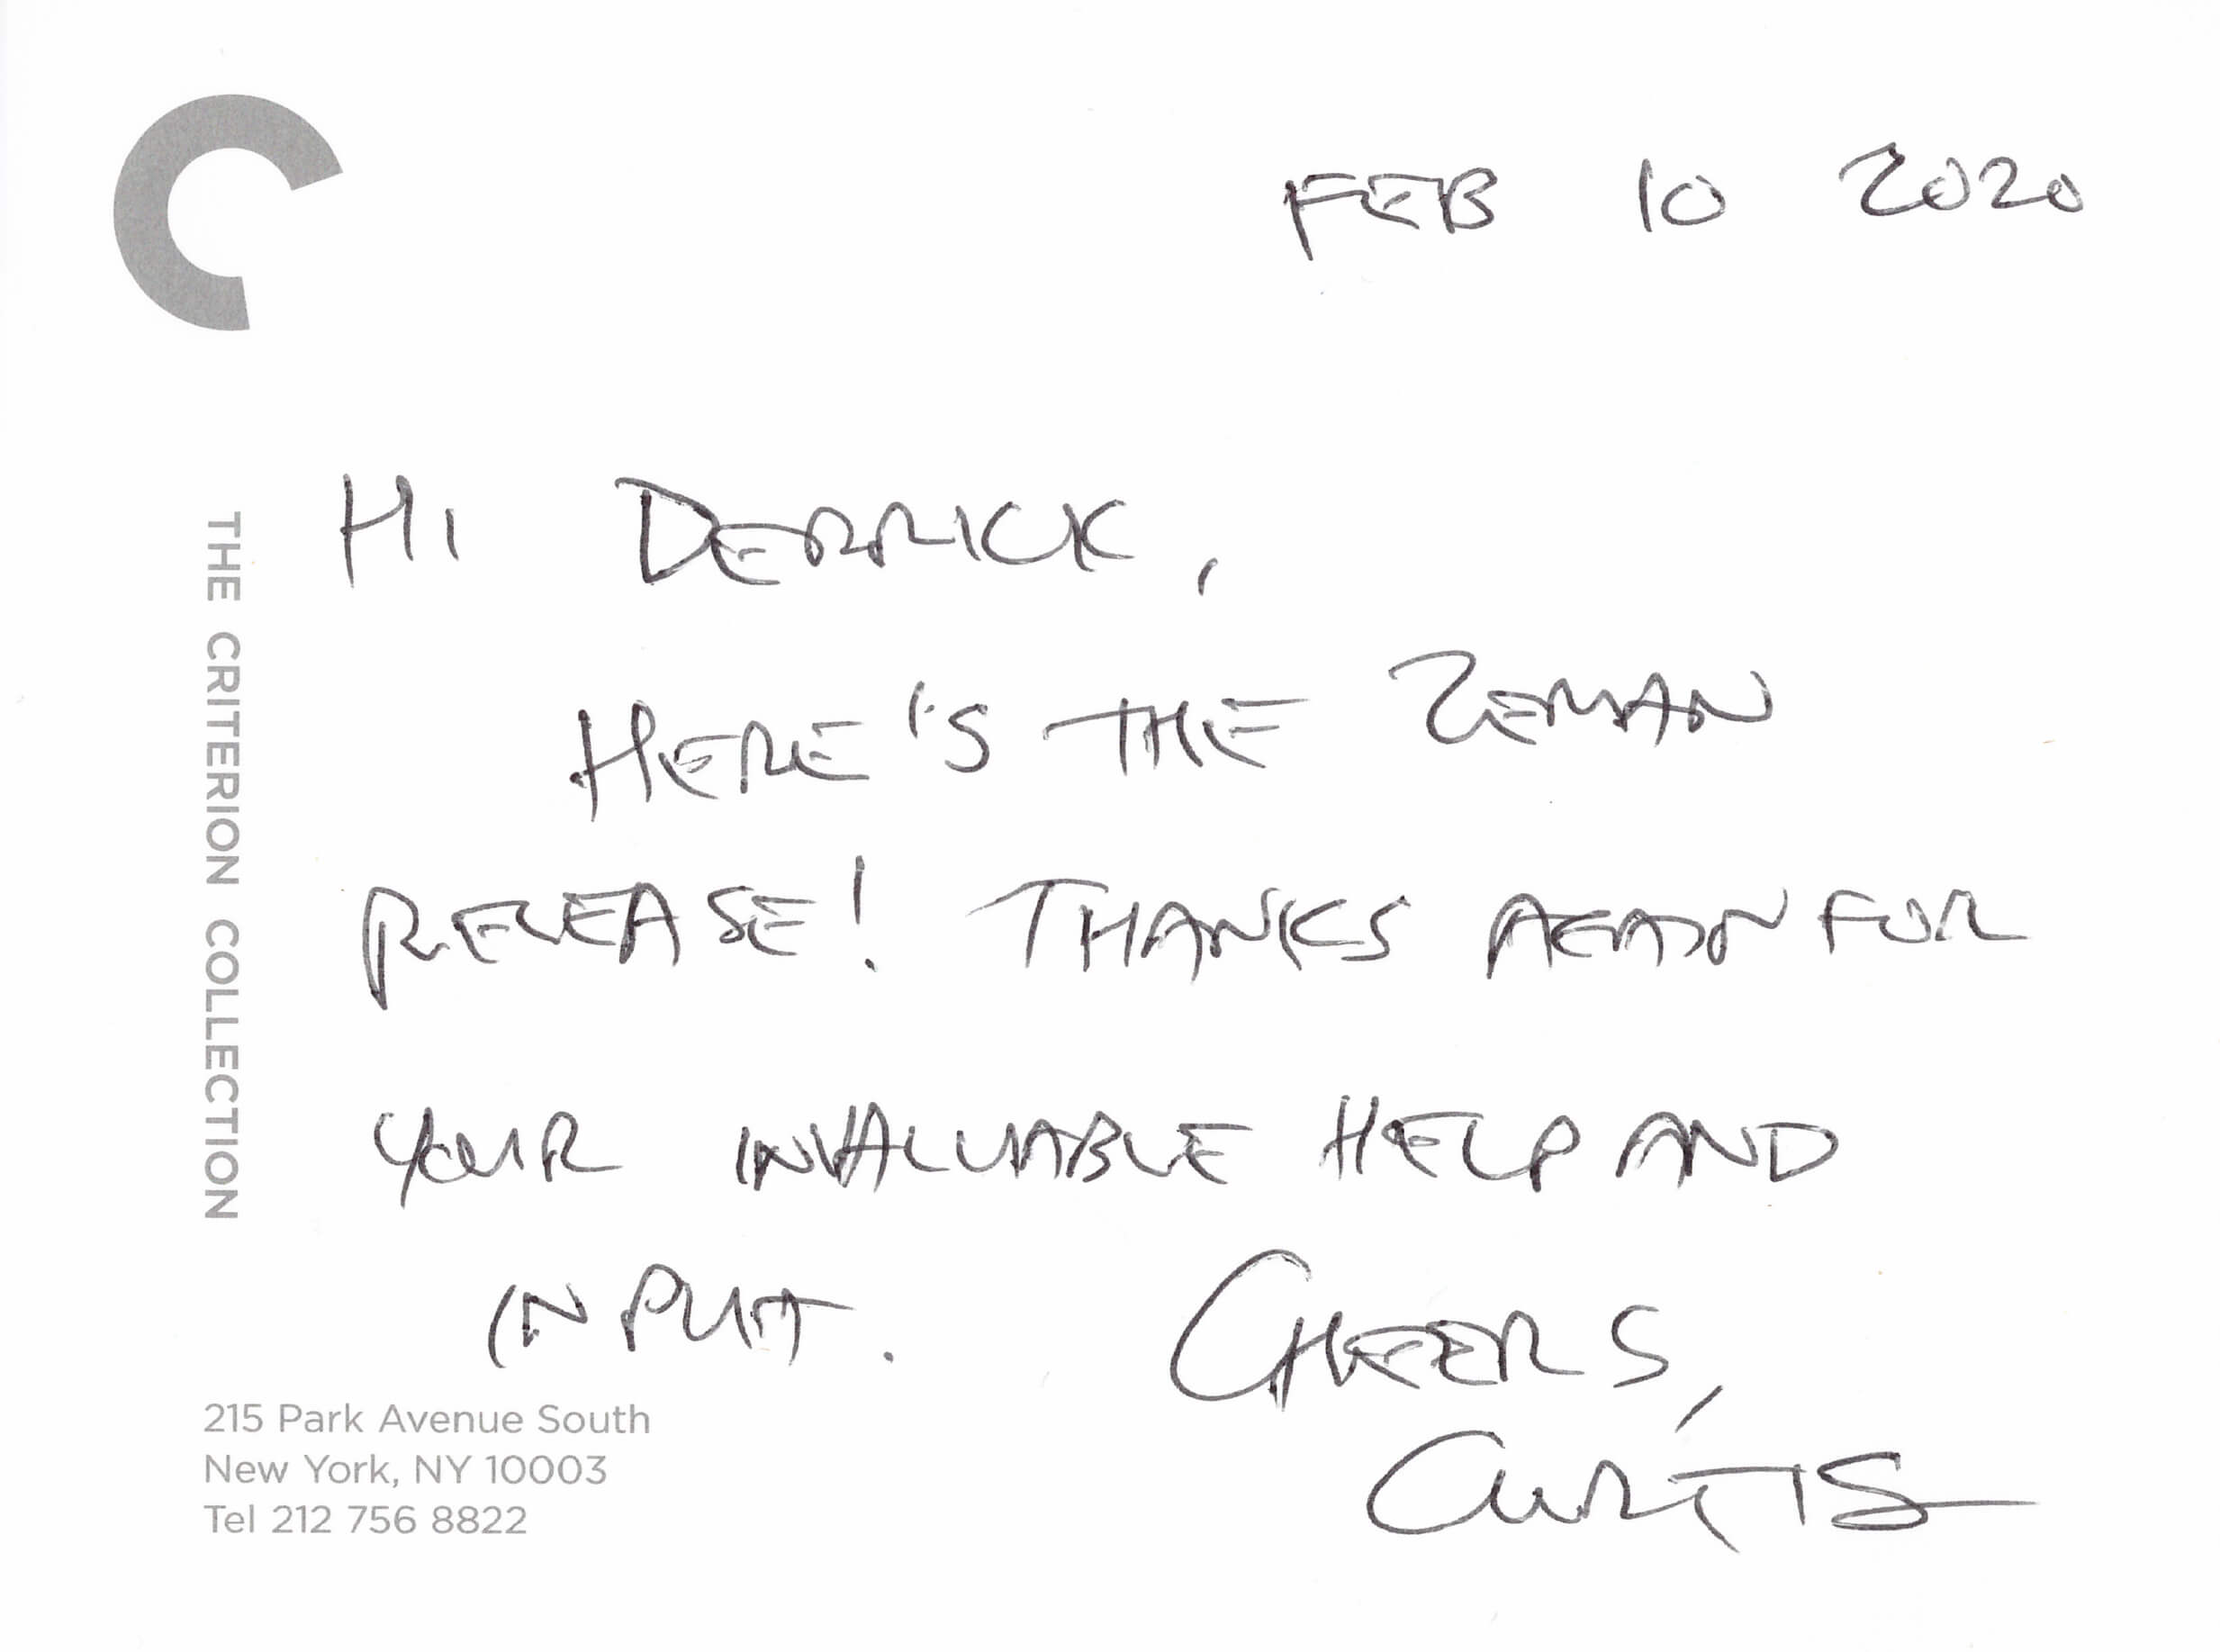 FEB 10 2020
HI DERRICK,
HERE'S THE ZEMAN
RELEASE! THANKS AGAIN FOR
YOUR INVALUABLE HELP AND
INPUT. CHEERS,
CURTIS
THE CRITERION COLLECTION
215 Park Avenue South
New York, NY 10003
Tel 212 756 8822